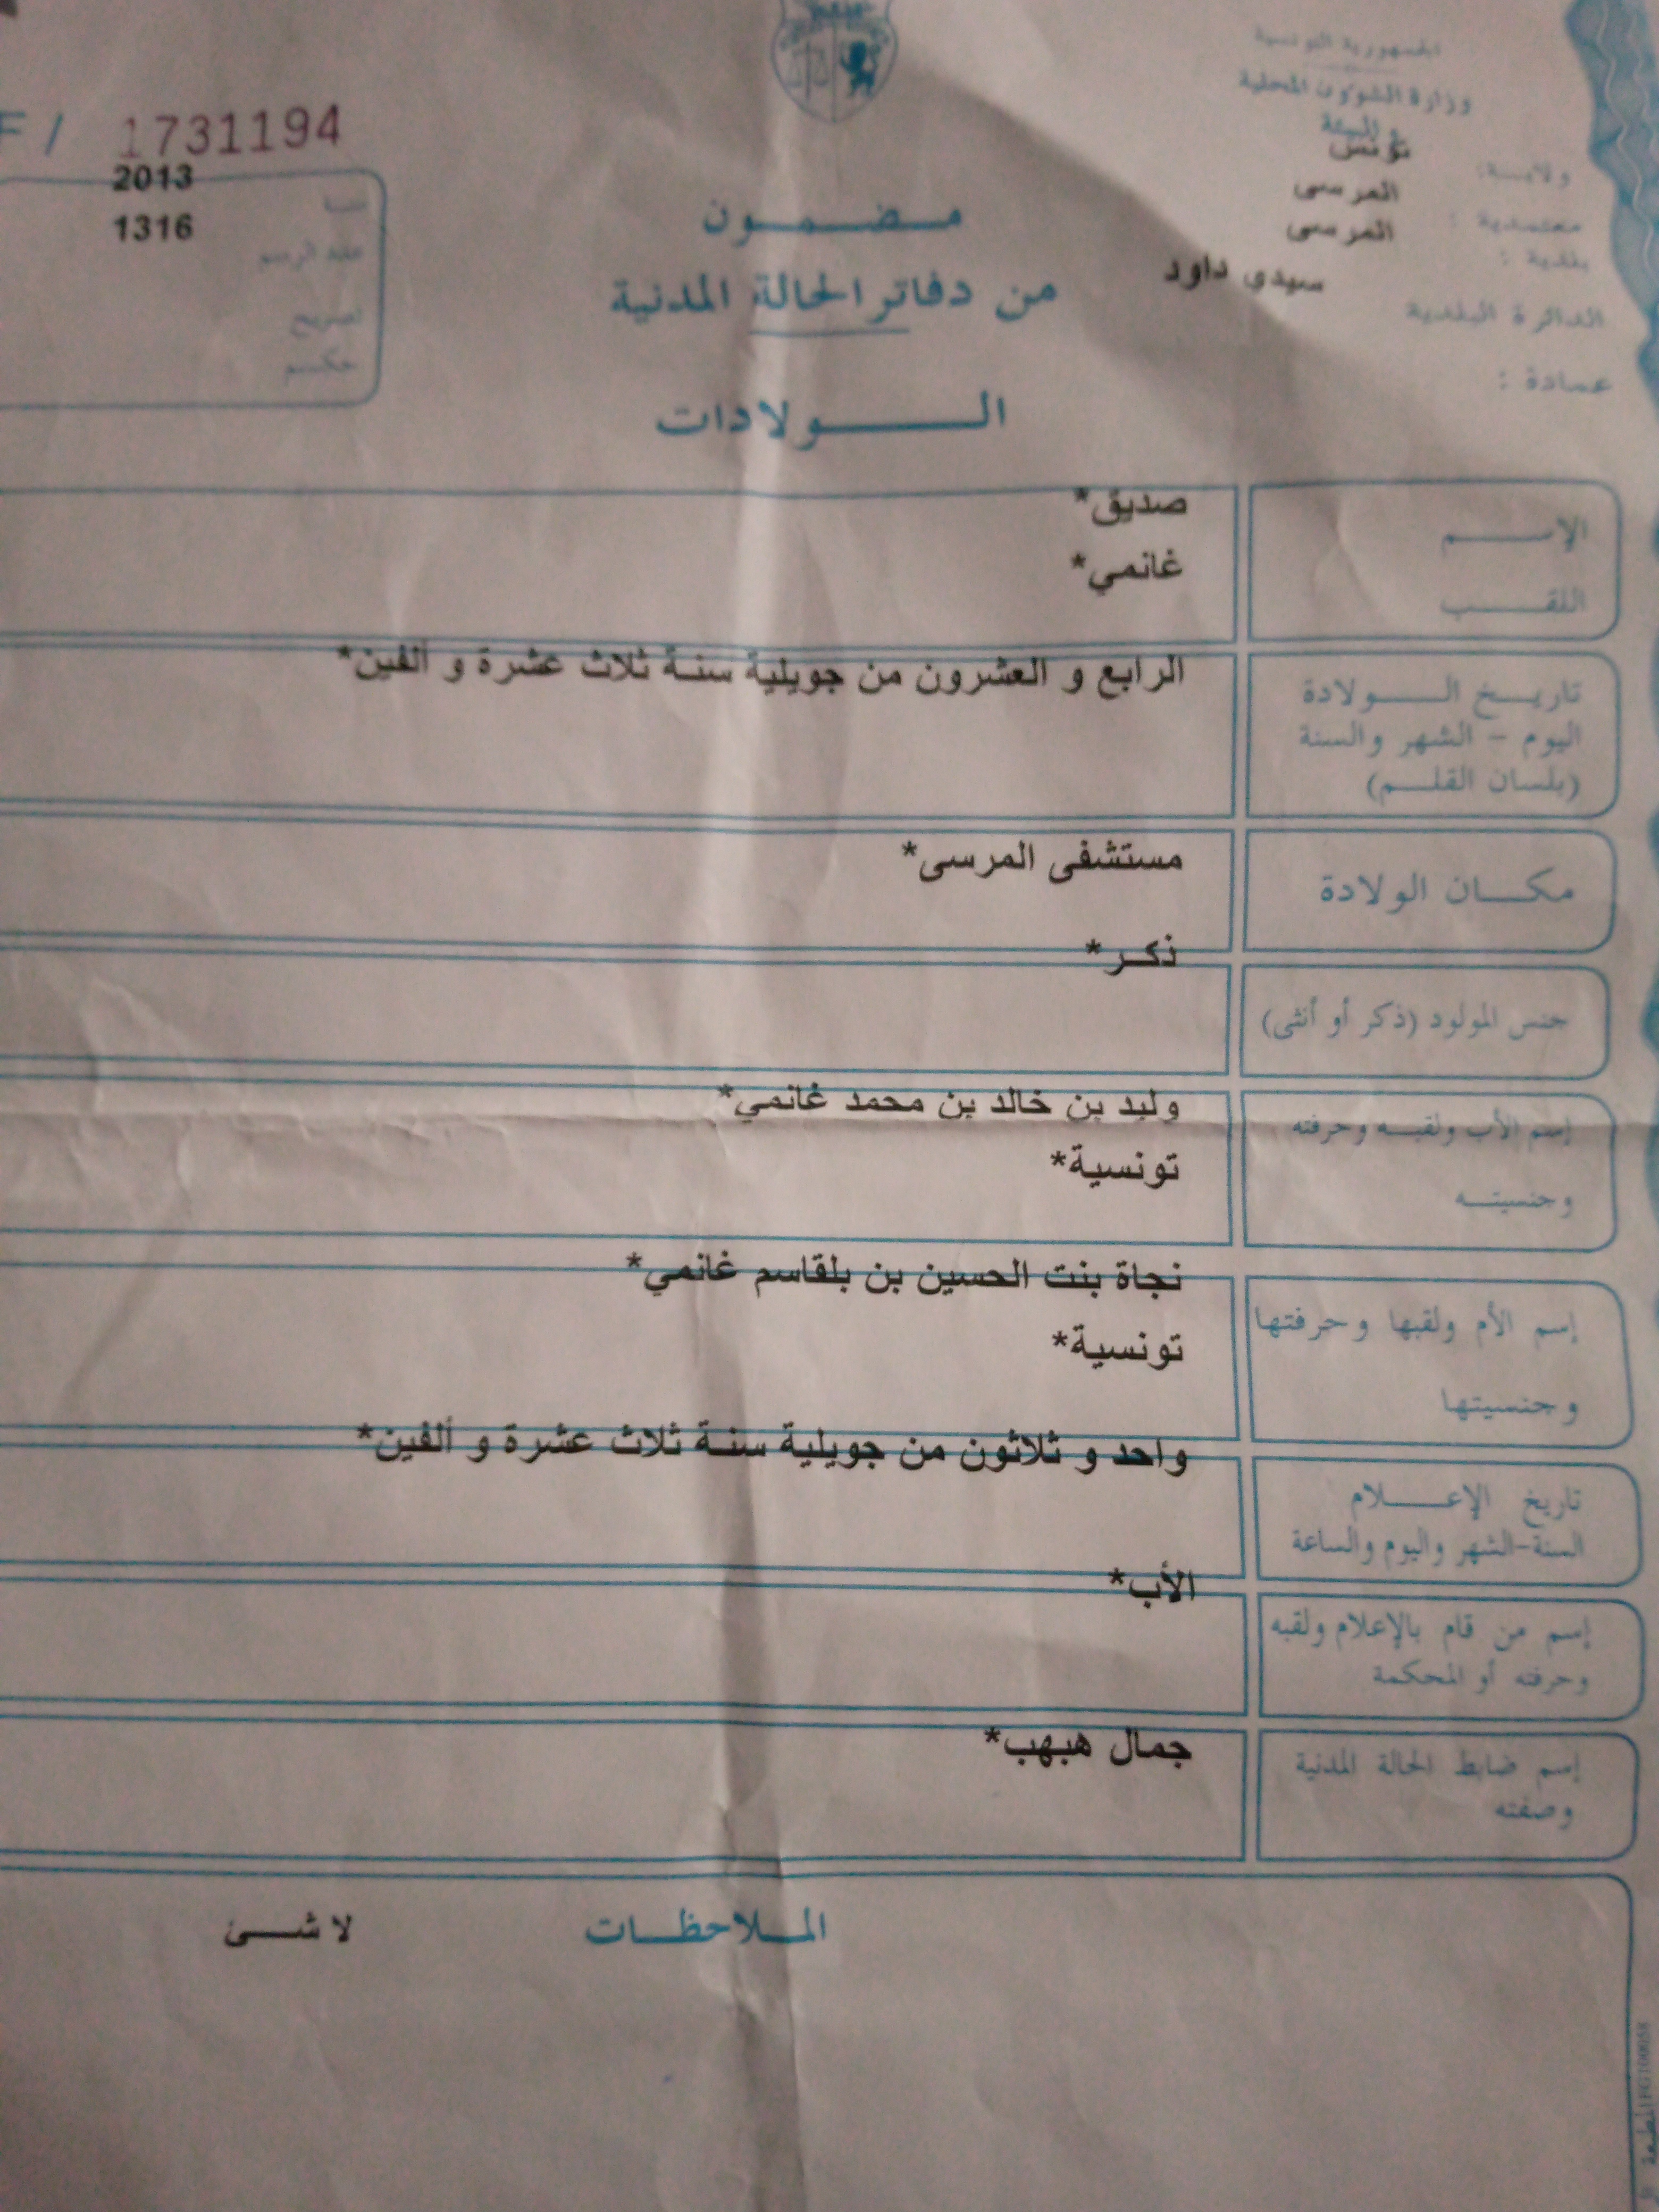 الجمهورية التونسية
وزارة الشؤون المحلية
والبيئة
ولايـــة: تونس
معتمدية : المرسى
بلدية : المرسى
الدائرة البلدية سيدي داود
عمادة :
F / 1731194
سنة 2013
عقد الرسم 1316
تصريح
حكم
مضمون
من دفاتر الحالة المدنية
الولادات
الإسم صديق*
اللقب غانمي*
تاريخ الولادة الرابع و العشرون من جويلية سنة ثلاث عشرة و ألفين*
اليوم - الشهر والسنة
(بلسان القلم)
مكان الولادة مستشفى المرسى*
جنس المولود (ذكر أو أنثى) ذكر*
إسم الأب ولقبه وحرفته وليد بن خالد بن محمد غانمي*
وجنسيته تونسية*
إسم الأم ولقبها وحرفتها نجاة بنت الحسين بن بلقاسم غانمي*
وجنسيتها تونسية*
تاريخ الإعلام واحد و ثلاثون من جويلية سنة ثلاث عشرة و ألفين*
السنة-الشهر واليوم والساعة
إسم من قام بالإعلام ولقبه الأب*
وحرفته أو المحكمة
إسم ضابط الحالة المدنية جمال هبهب*
وصفته
الملاحظات لا شئ